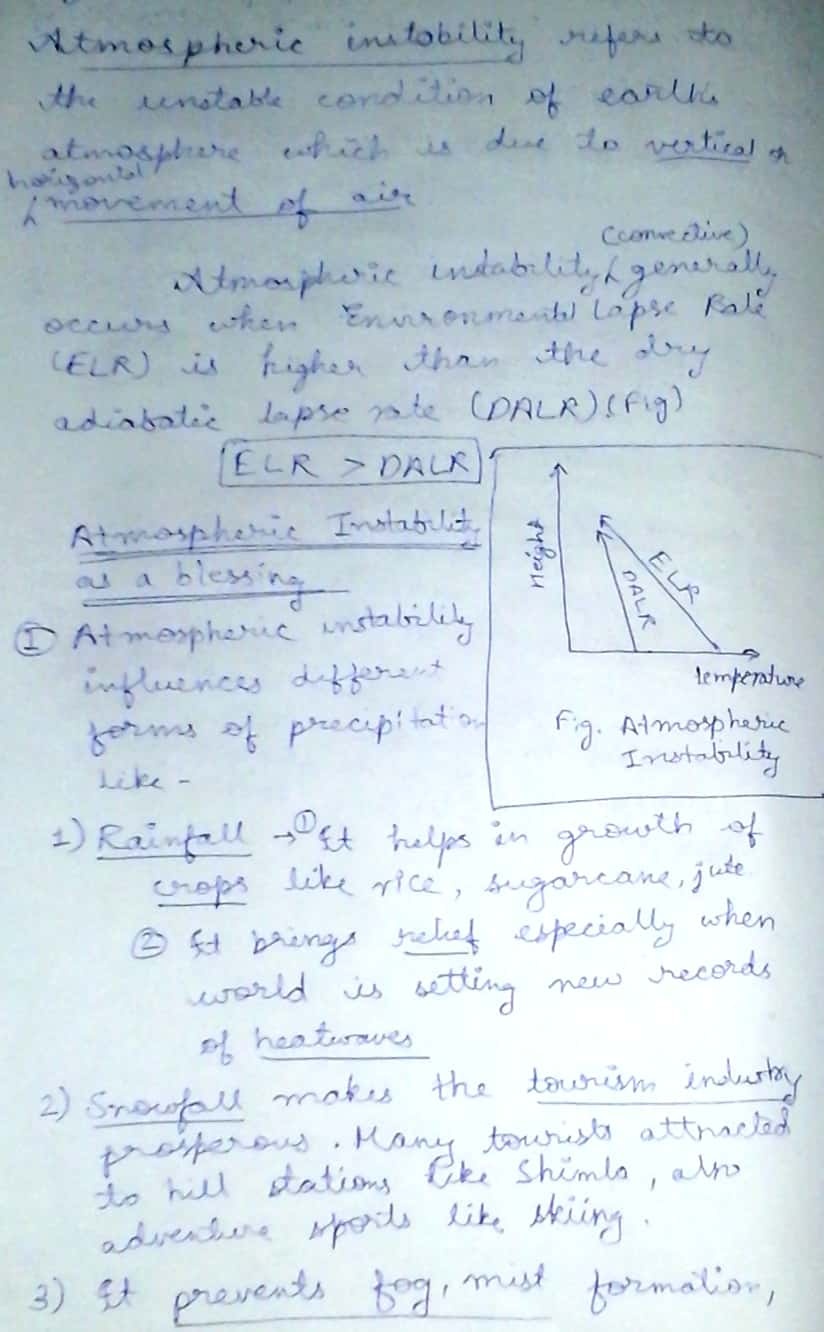 Atmospheric instability refers to
the unstable condition of earth's
atmosphere which is due to vertical or
horizontal
movement of air
(convective)
Atmospheric instability generally
occurs when Environmental Lapse Rate
(ELR) is higher than the dry
adiabatic lapse rate (DALR) (Fig)
ELR > DALR
Atmospheric Instability
as a blessing
I Atmospheric instability
influences different
forms of precipitation
like -
Height
ELR
DALR
temperature
Fig. Atmospheric
Instability
1) Rainfall → ① It helps in growth of
crops like rice, sugarcane, jute
② It brings relief especially when
world is setting new records
of heatwaves
2) Snowfall makes the tourism industry
prosperous. Many tourists attracted
to hill stations like Shimla, also
adventure sports like skiing.
3) It prevents fog, mist formation,